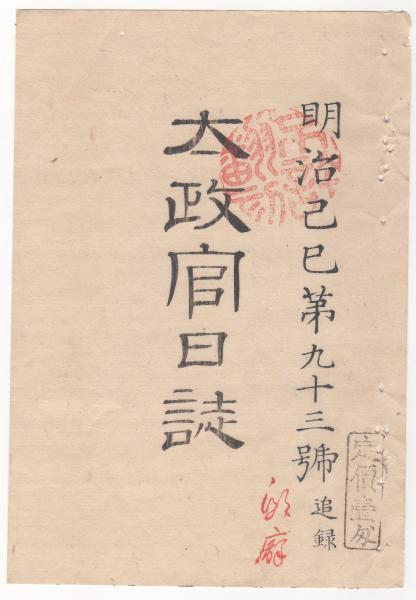 明治己巳第九十三號追録
太政官日誌
定價壹匁